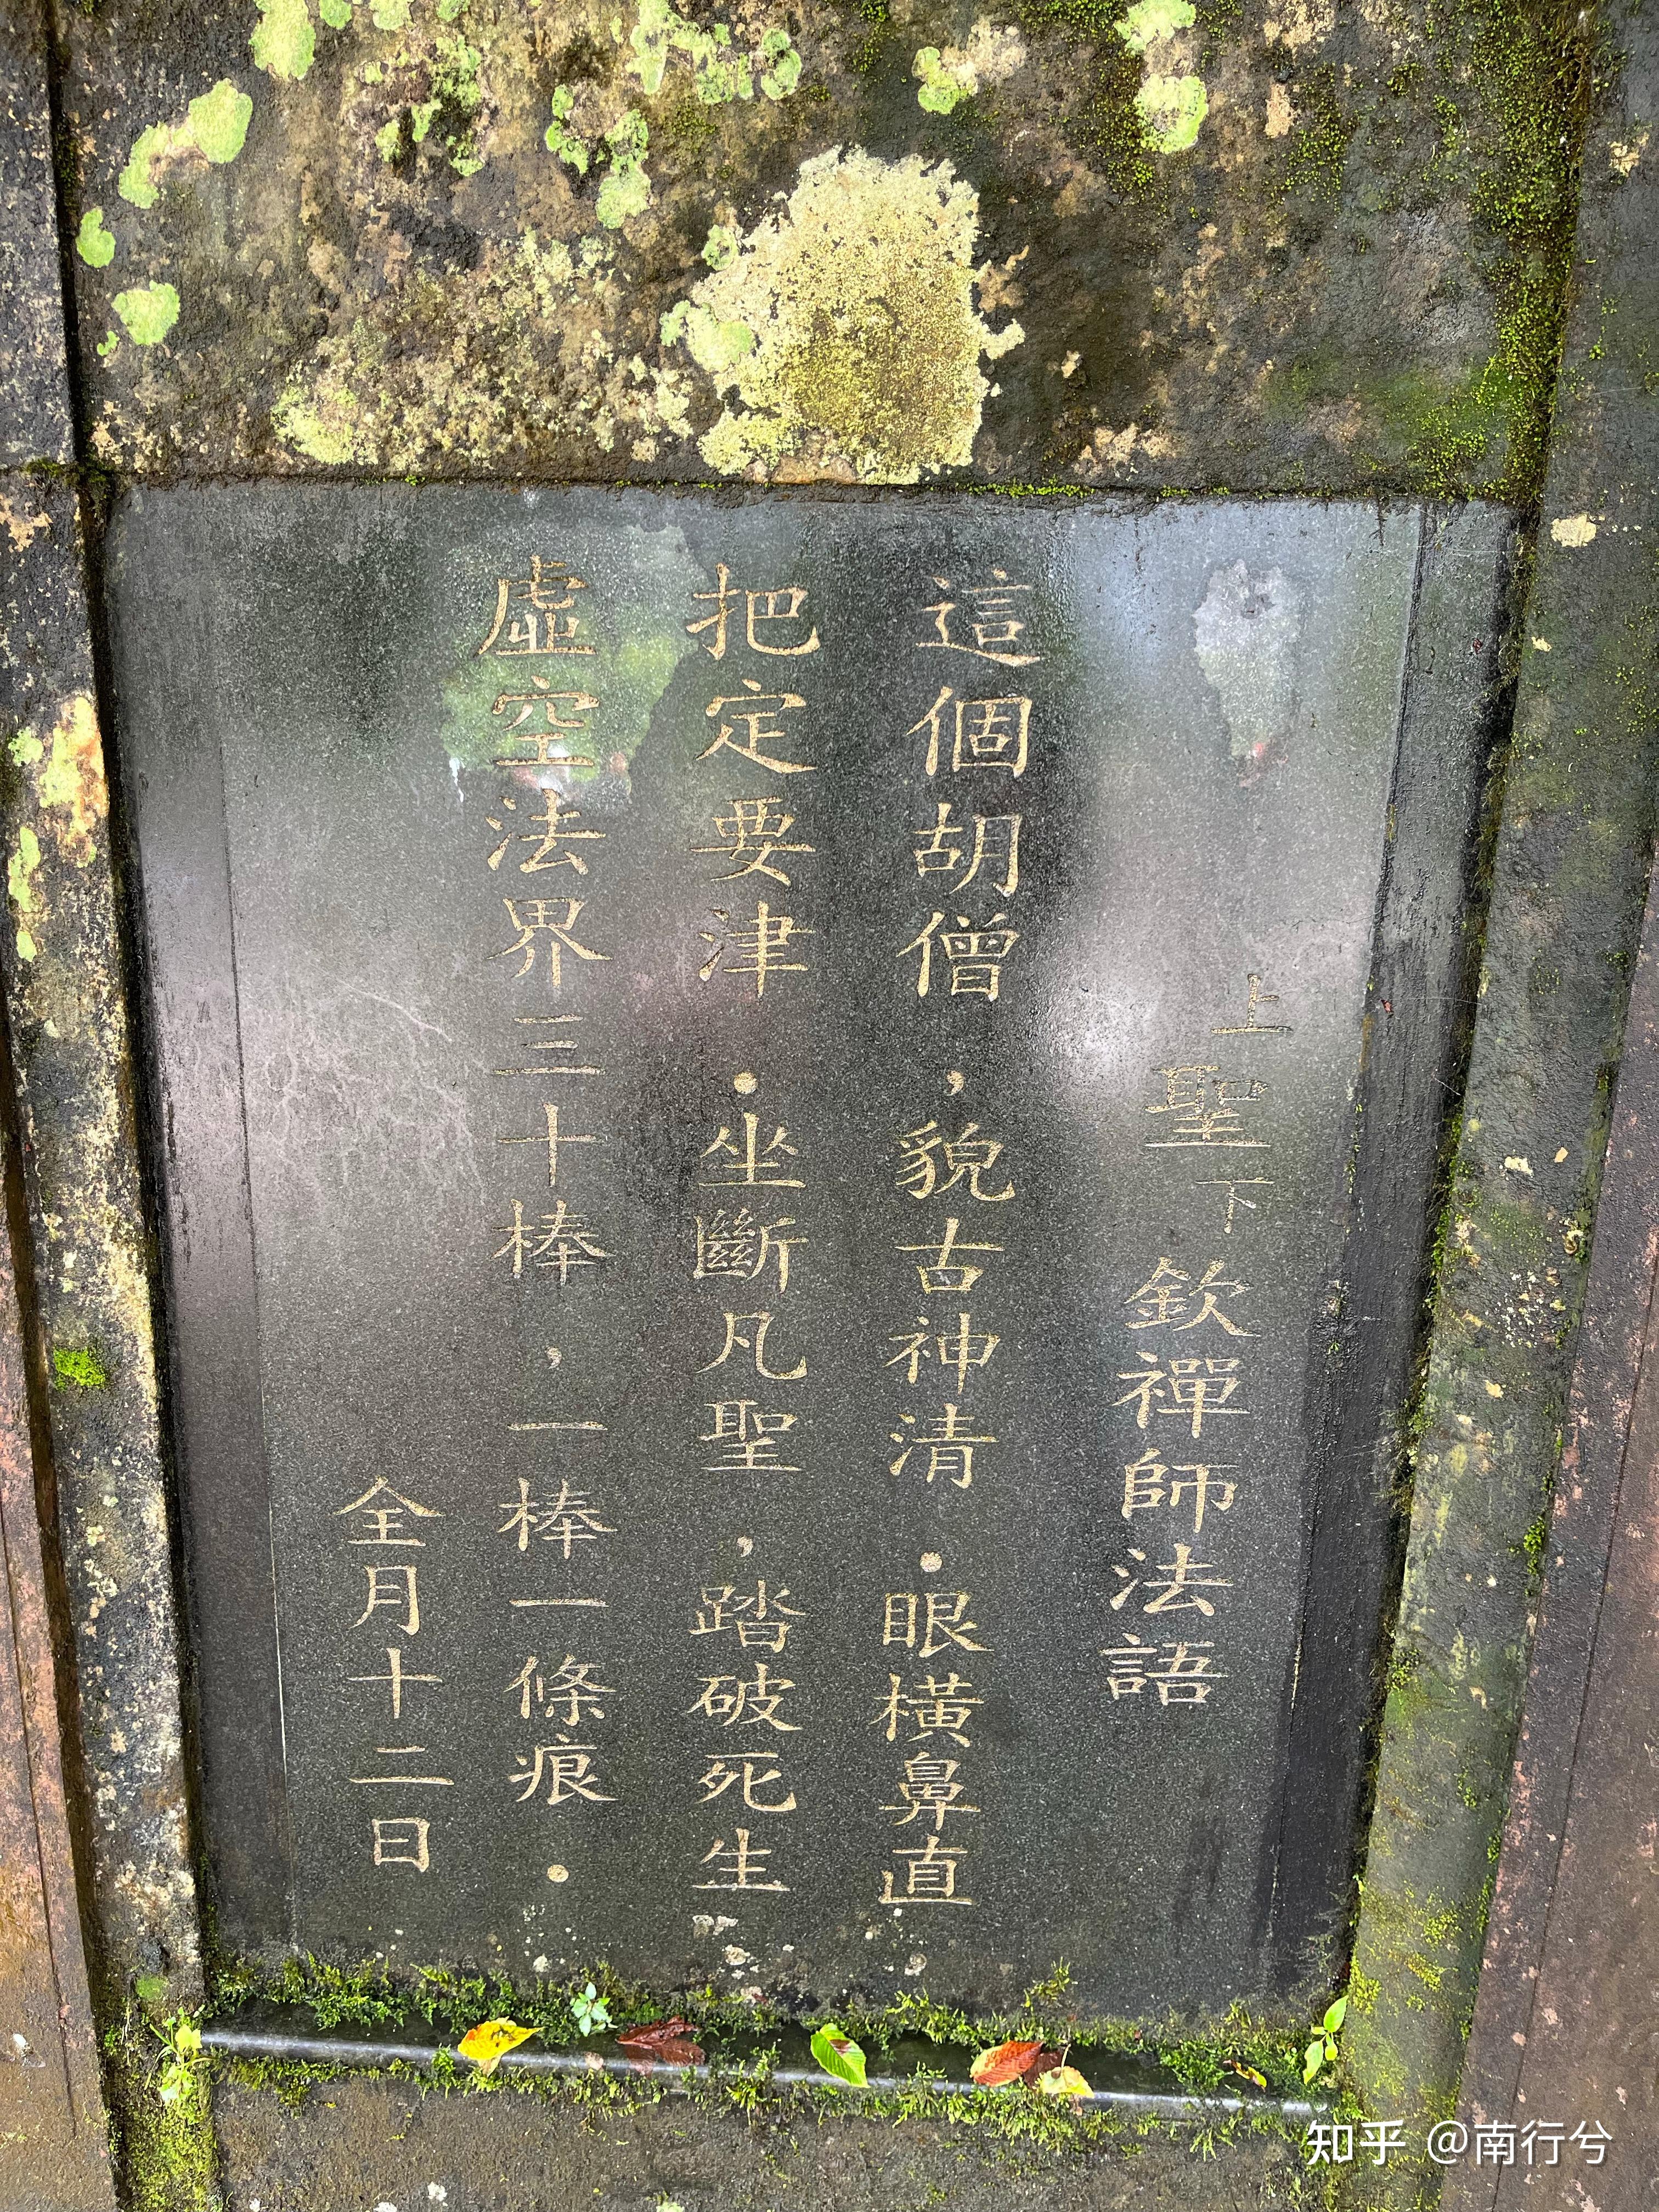 上聖下欽禪師法語
這個胡僧，貌古神清．眼橫鼻直．
把定要津．坐斷凡聖，踏破死生．
虛空法界三十棒，一棒一條痕．
全月十二日
知乎 @南行兮